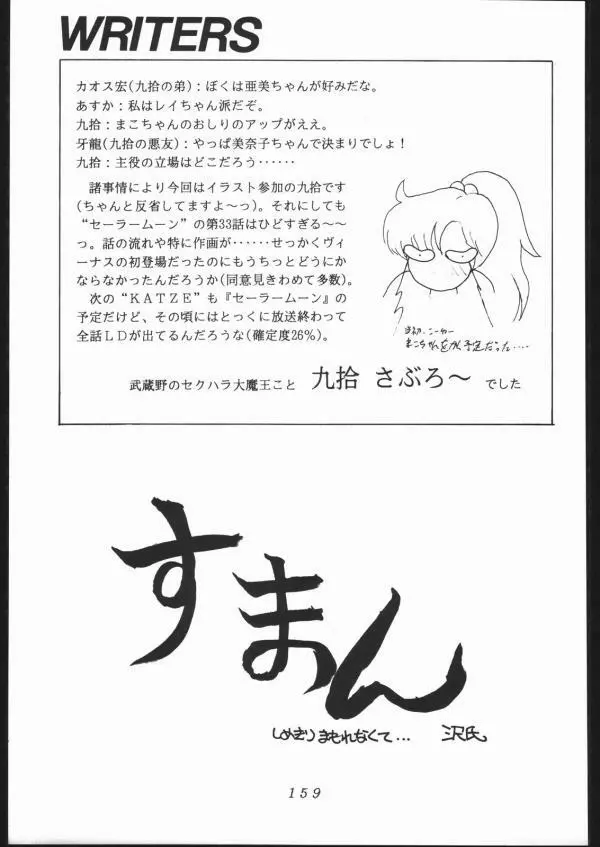 WRITERS
カオス宏(九拾の弟)：ぼくは亜美ちゃんが好みだな。
あすか：私はレイちゃん派だぞ。
九拾：まこちゃんのおしりのアップがええ。
牙龍(九拾の悪友)：やっぱ美奈子ちゃんで決まりでしょ！
九拾：主役の立場はどこだろう……
諸事情により今回はイラスト参加の九拾です
(ちゃんと反省してますよ～っ)。それにしても
“セーラームーン”の第33話はひどすぎる～～
っ。話の流れや特に作画が……せっかくヴィ
ーナスの初登場だったのにもうちっとどうにか
ならなかったんだろうか(同意見きわめて多数)。
次の“KATZE”も『セーラームーン』の
予定だけど、その頃にはとっくに放送終わって
全話LDが出てるんだろうな(確定度26%)。
まこちゃんをかく予定だった....
武蔵野のセクハラ大魔王こと 九拾 さぶろ～ でした
すまん
しめきりまもれなくて... 沢氏
159